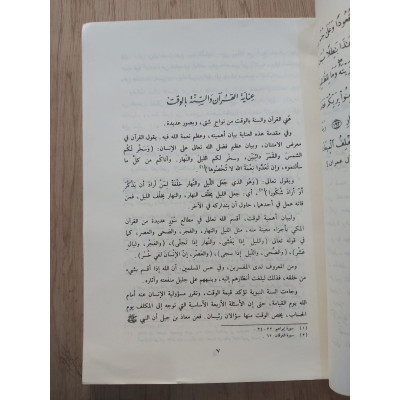 عناية القرآن والسنة بالوقت
عُني القرآن والسنة بالوقت من نواح شتى، وبصور عديدة.
وفي مقدمة هذه العناية بيان أهميته، وعظم نعمة الله فيه. يقول القرآن في
معرض الامتنان، وبيان عظم فضل الله تعالى على الإنسان: ﴿وسخر لكم
الشمس والقمر دائبين، وسخر لكم الليل والنهار. وآتاكم من كل ما
سألتموه، وإن تعدوا نعمة الله لا تحصوها﴾(١).
ويقول تعالى: ﴿وهو الذي جعل الليل والنهار خلفة لمن أراد أن يذكر
أو أراد شكورا﴾(٢). أي جعل الليل يخلف النهار، والنهار يخلف الليل، فمن
فاته عمل في أحدهما، حاول أن يتداركه في الآخر.
ولبيان أهمية الوقت، أقسم الله تعالى في مطالع سور عديدة من القرآن
المكي بأجزاء معينة منه، مثل الليل والنهار، والفجر، والضحى والعصر، كما
في قوله تعالى: ﴿والليل إذا يغشى، والنهار إذا تجلى﴾، ﴿والفجر، وليال
عشر﴾، ﴿والضحى، والليل إذا سجى﴾، ﴿والعصر، إن الإنسان لفي خسر﴾.
ومن المعروف لدى المفسرين، وفي حس المسلمين، أن الله إذا أقسم بشيء
من خلقه، فذلك ليلفت أنظارهم إليه، وينبههم على جليل منفعته وآثاره.
وجاءت السنة النبوية تؤكد قيمة الوقت، وتقرر مسؤولية الإنسان عنه أمام
الله يوم القيامة، حتى إن الأسئلة الأربعة الأساسية التي توجه إلى المكلف يوم
الحساب، يخص الوقت منها سؤالان رئيسان. فعن معاذ بن جبل أن النبي ﷺ
(١) سورة إبراهيم: ٣٣، ٣٤.
(٢) سورة الفرقان: ٦٢
٧